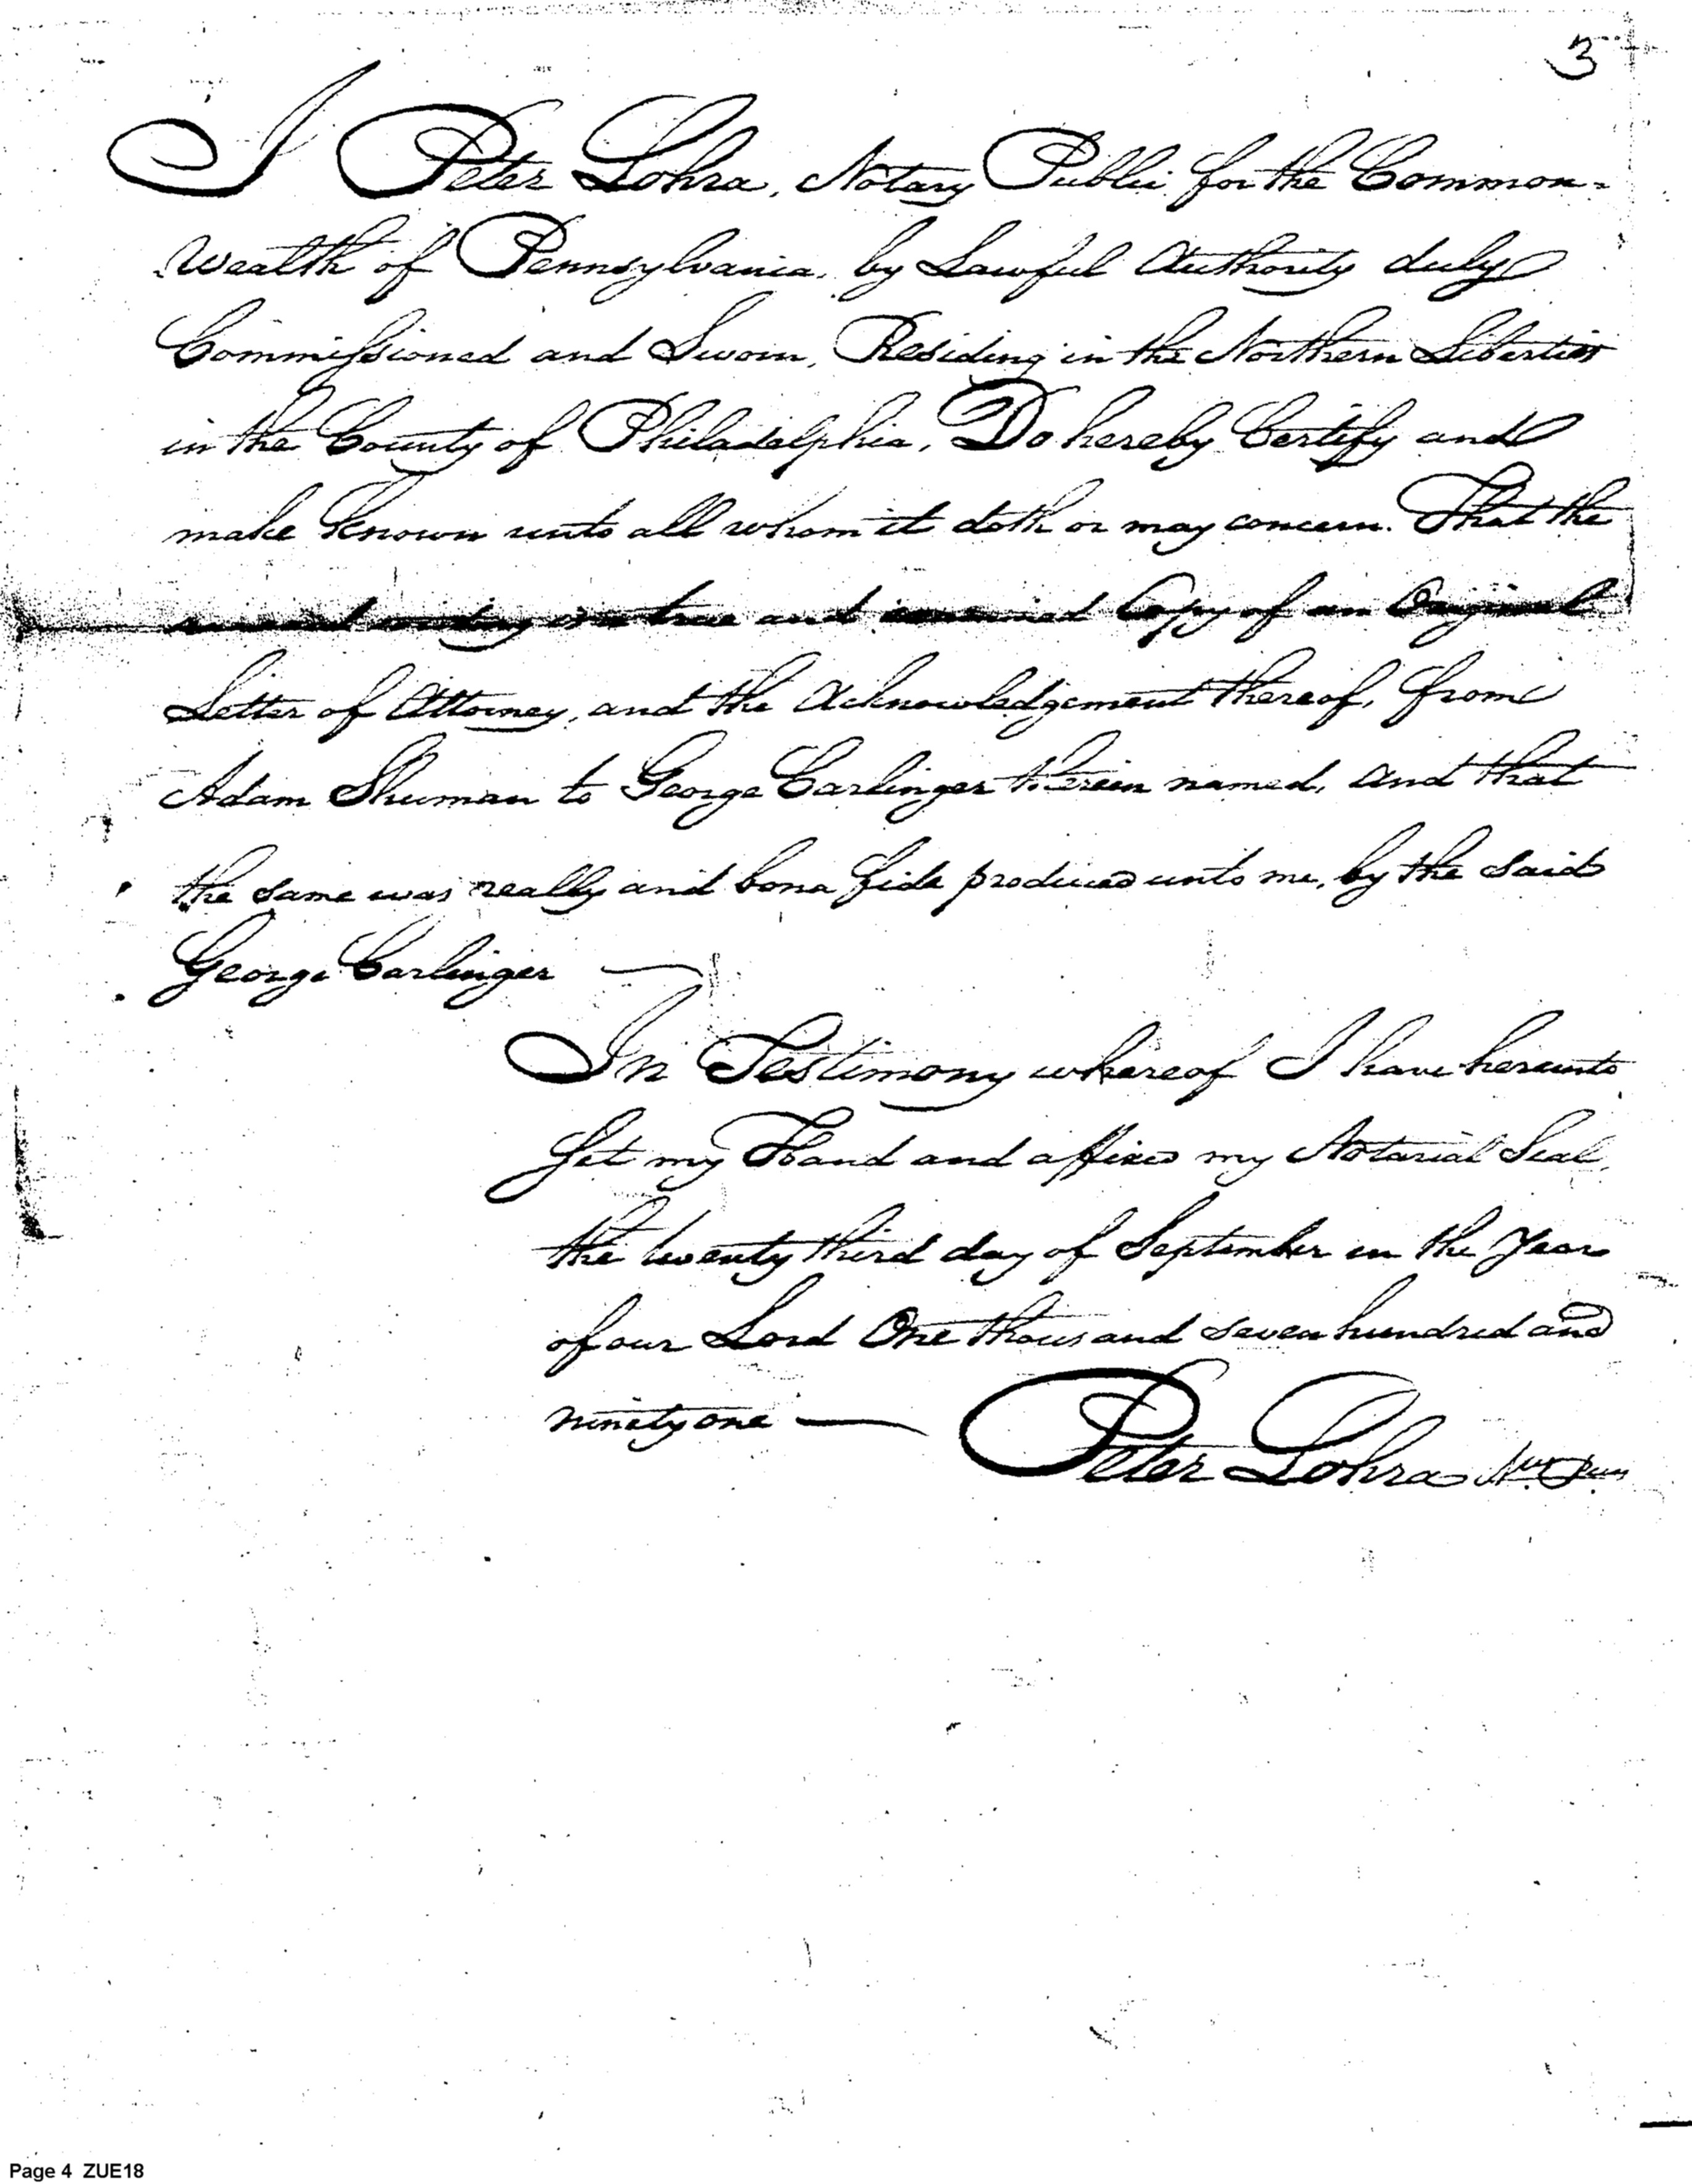 3
I Peter Lohra, Notary Public for the Common-
Wealth of Pennsylvania, by Lawful Authority duly
Commissioned and Sworn, Residing in the Northern Liberties
in the County of Philadelphia, Do hereby Certify and
make known unto all whom it doth or may concern. That the
writing is a true and Copy of an Original
Letter of Attorney, and the Acknowledgement thereof, from
Adam Shuman to George Carlinger therein named, and that
the same was really and bona fide produced unto me, by the said
George Carlinger
In Testimony whereof I have hereunto
Set my Hand and affixed my Notarial Seal,
the twenty third day of September in the Year
of our Lord One thousand seven hundred and
ninety one
Peter Lohra
Page 4 ZUE18